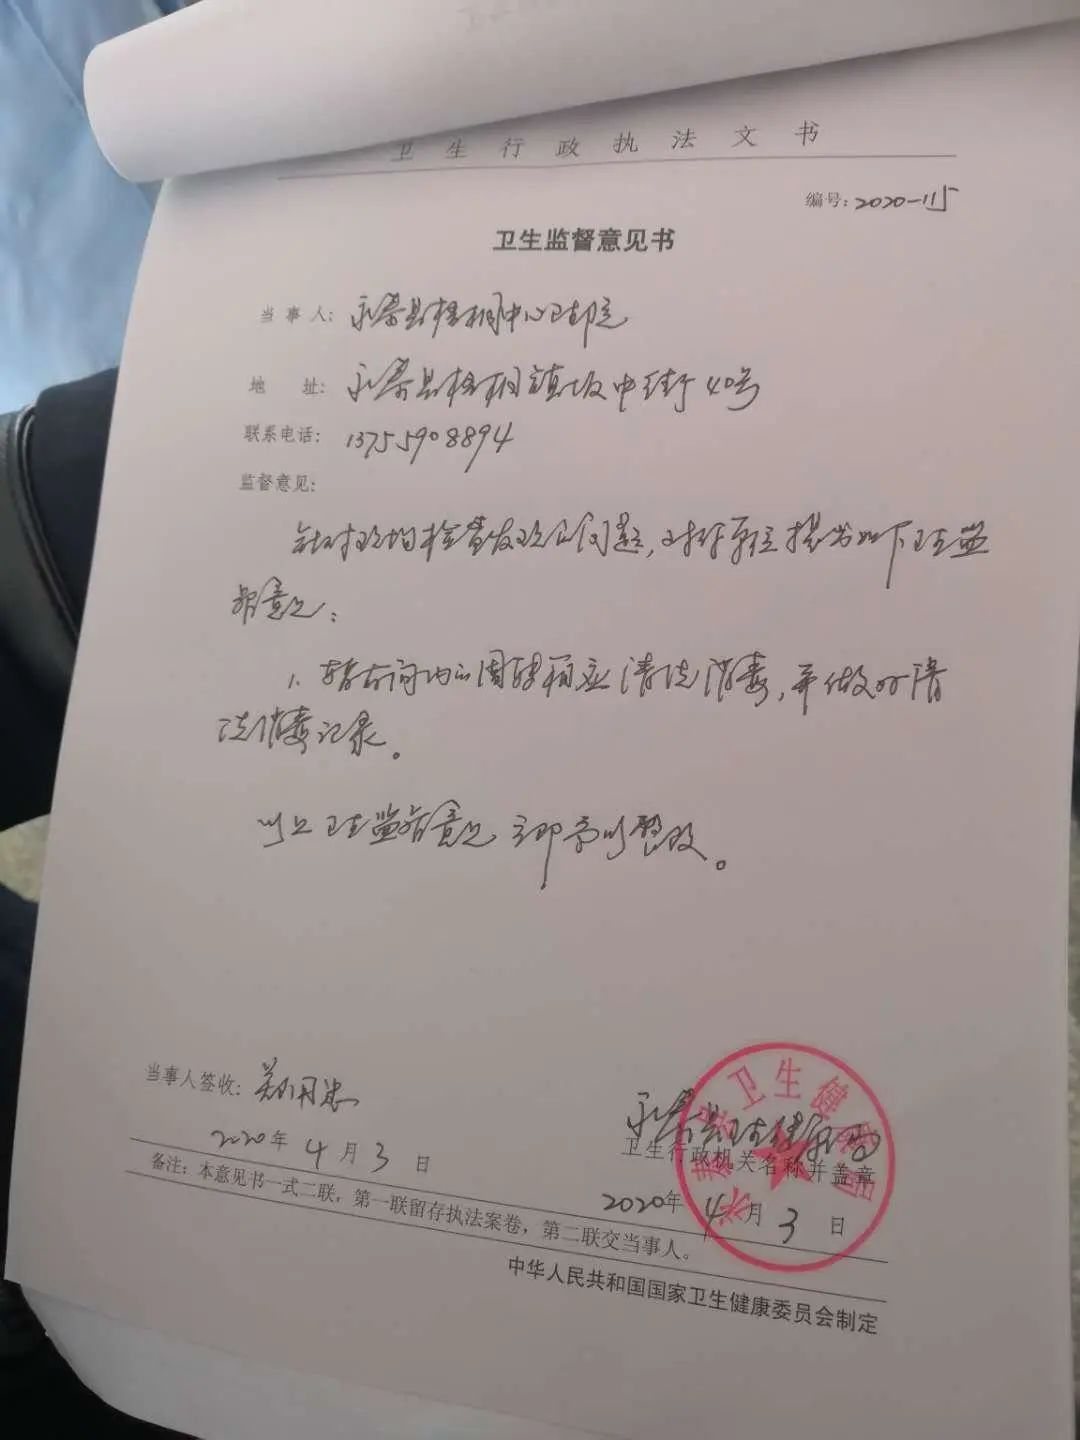 卫生行政执法文书
编号:2020-115
卫生监督意见书
当事人:永泰县梧桐中心卫生院
地址:永泰县梧桐镇坂中街40号
联系电话:13755908894
监督意见:
针对现场检查发现的问题,对你单位提出如下卫生监
督意见:
1、暂存间内的周转箱应清洗消毒,并做好清
洗消毒记录。
以上卫生监督意见立即予以整改。
当事人签收:郑用忠
2020年4月3日
永泰县卫生健康局
卫生行政机关名称并盖章
2020年4月3日
永泰县卫生健康局
备注:本意见书一式二联,第一联留存执法案卷,第二联交当事人。
中华人民共和国国家卫生健康委员会制定